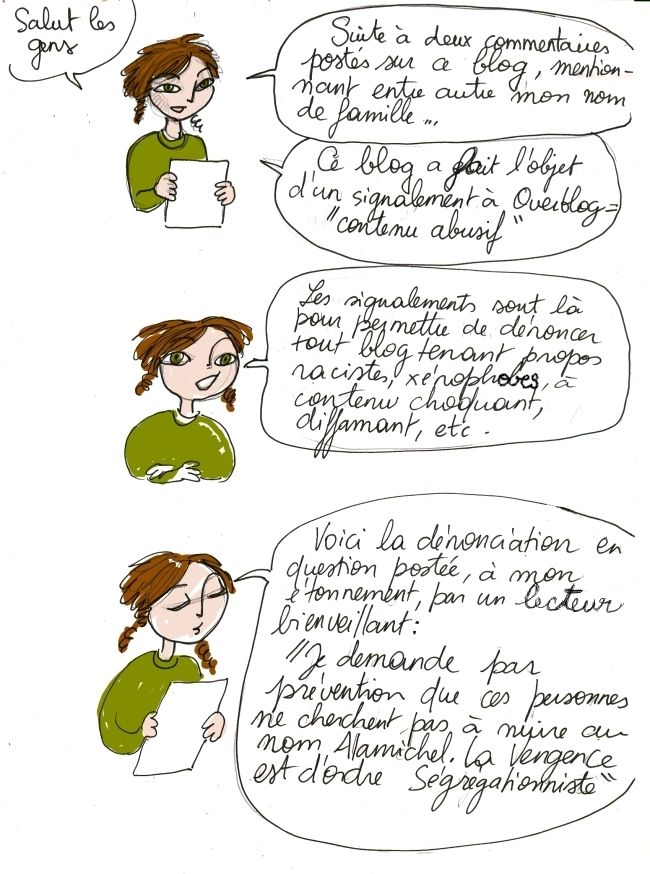 Salut les
gens
Suite à deux commentaires
postés sur ce blog, mention-
nant entre autre mon nom
de famille...
Ce blog a fait l'objet
d'un signalement à Overblog=
"contenu abusif"
Les signalements sont là
pour permettre de dénoncer
tout blog tenant propos
racistes, xénophobes, à
contenu choquant,
diffamant, etc.
Voici la dénonciation en
question postée, à mon
étonnement, par un lecteur
bienveillant:
"Je demande par
prévention que ces personnes
ne cherchent pas à nuire au
nom Alamichel. La Vengence
est d'ordre Ségrégationniste"